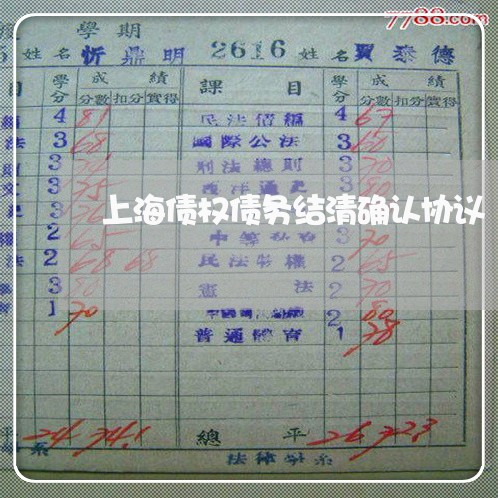 7788.com
學期
姓名 忻鼎明 2616 姓名 賈泰德
目 學分 成績 課目 學分 成績
分數 扣分 實得 分數 扣分 實得
4 81 民法債編 4 67
法 3 68 國際公法 3 60
3 刑法總則 3 70
3 75 西洋通史 3 80
上海债权债务结清确认协议
2 65 3 70
法 2 68 68 民法物權 2 65
3 80 憲法 2 70
1 70 2 80
普通體育 1 78
平 24 74.1 總平 26 72.3
系 法律學系